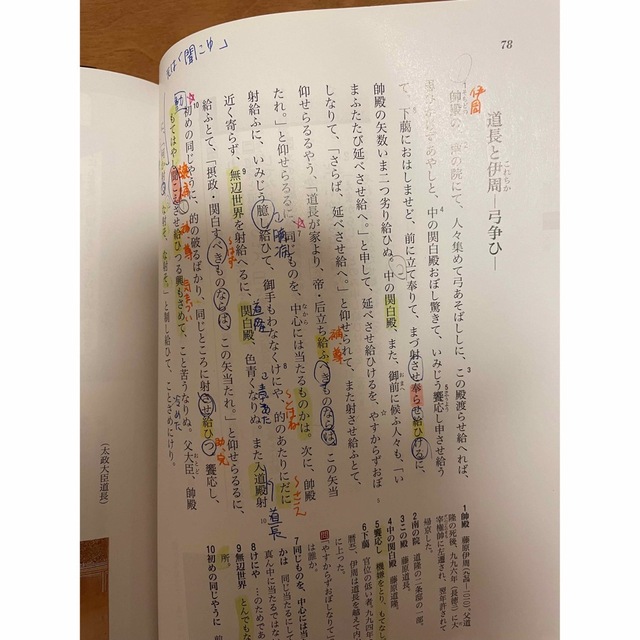 78
元は「聞こゆ」
道長と伊周―弓争ひ―
これちか
伊周
帥殿の、南の院にて、人々集めて弓あそばししに、この殿渡らせ給へれば、
思ひかけずあやしと、中の関白殿おぼし驚きて、いみじう饗応し申させ給う
て、下﨟におはしませど、前に立て奉りて、まづ射させ奉らせ給ひけるに、
帥殿の矢数いま二つ劣り給ひぬ。中の関白殿、また、御前に候ふ人々も、「い
まふたたび延べさせ給へ。」と申して、延べさせ給ひけるを、やすからずおぼ
しなりて、「さらば、延べさせ給へ。」と仰せられて、また射させ給ふとて、
仰せらるるやう、「道長が家より、帝・后立ち給ふべきものならば、この矢当
たれ。」と仰せらるるに、同じものを、中心には当たるものかは。次に、帥殿
射給ふに、いみじう臆し給ひて、御手もわななくけにや、的のあたりにだに
近く寄らず、無辺世界を射給へるに、関白殿、色青くなりぬ。また入道殿射
給ふとて、「摂政・関白すべきものならば、この矢当たれ。」と仰せらるるに、
初めの同じやうに、的の破るばかり、同じところに射させ給ひつ。饗応し、
もてはやし聞こえさせ給ひつる興もさめて、こと苦うなりぬ。父大臣、帥殿
に、「なにか射る。な射そ、な射そ。」と制し給ひて、ことさめにけり。
(太政大臣道長)
補・尊
道隆
道長
1 帥殿 藤原伊周
2 南の院 道隆の二条邸の一部。
3 この殿 藤原道長。
4 中の関白殿 藤原道隆。
5 饗応し 機嫌をとり、もてなし
6 下﨟 官位の低い者。
「やすからずおぼしなりて」
は誰か。
7 同じものを、中心には当
8 けにや …のためであ
9 無辺世界 とんでもな
所。
10 初めの同じやうに 前